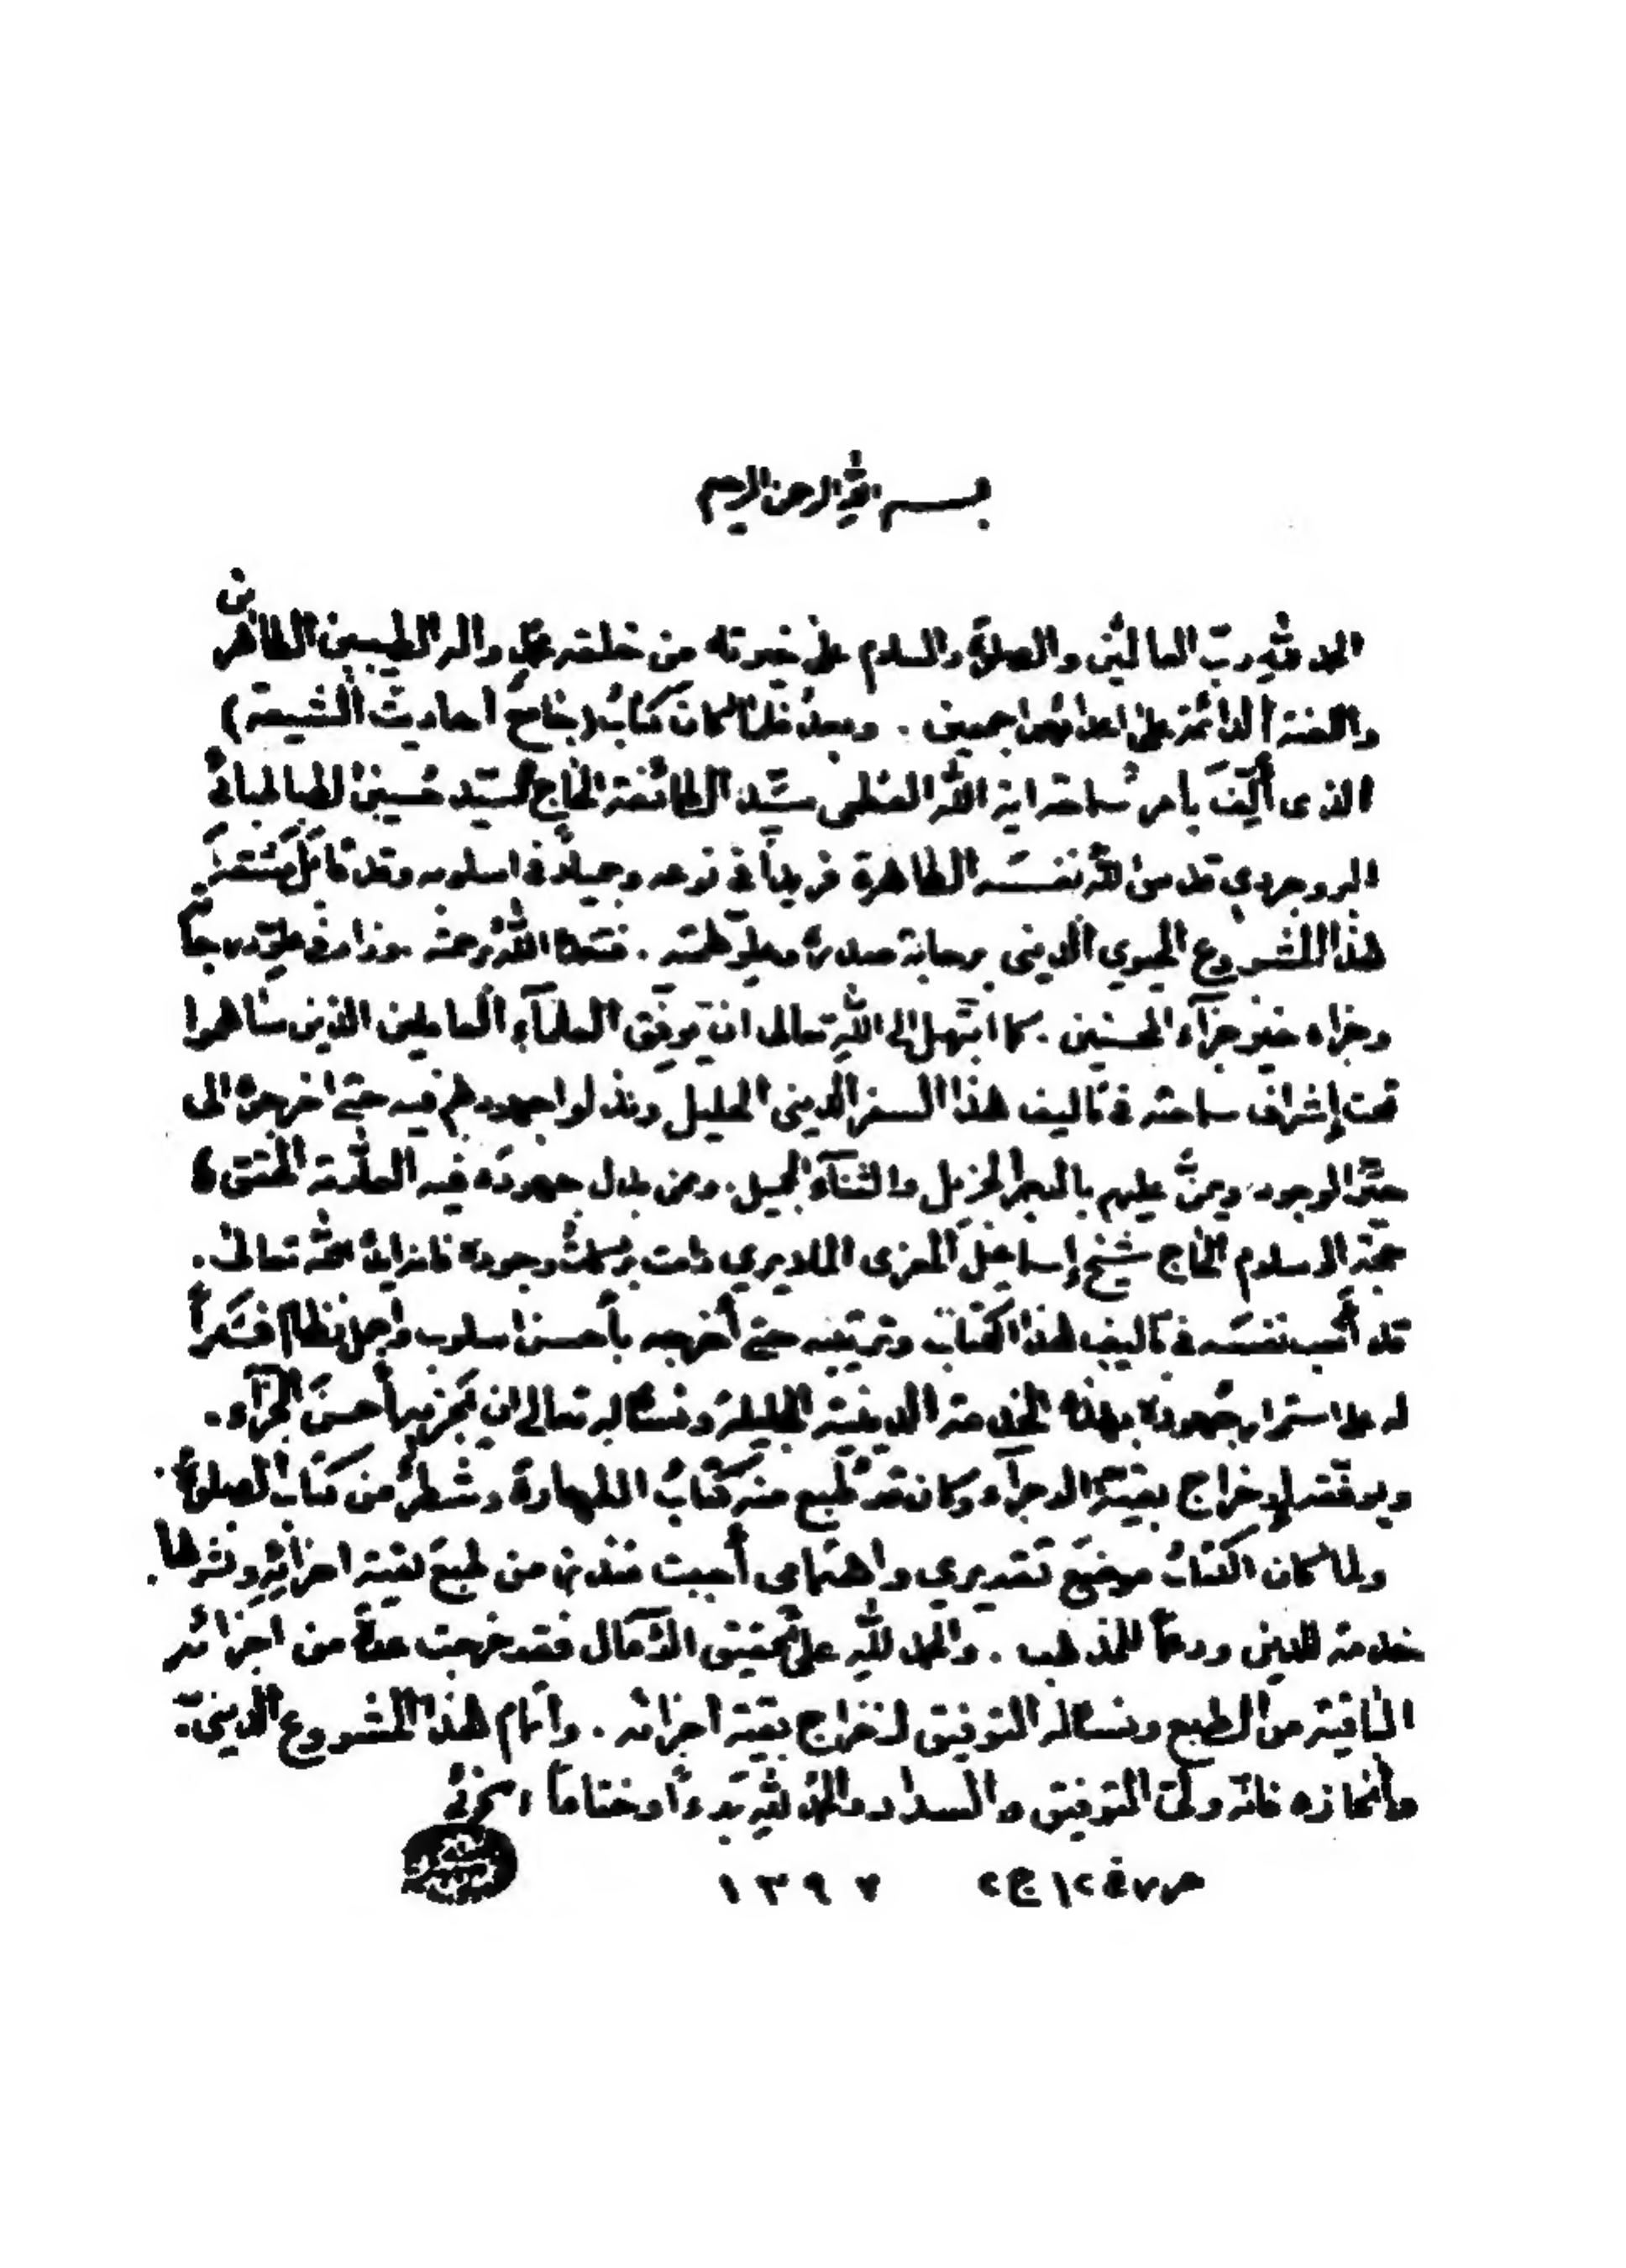 بسم الله الرحمن الرحيم
الحمد لله رب العالمين والصلوة والسلام على خيرته من خلقه محمد وآله الطيبين الطاهرين
واللعنة الدائمة على اعدائهم اجمعين . وبعد فلما كان كتاب (جامع احاديث الشيعة)
الذى أُلِّفَ بأمر سماحة اية الله العظمى سيّد الطائفة الحاج السيّد حسين الطباطبائي
البروجردي قدس الله نفسه الطاهرة فريداً في نوعه وجميلاً في اسلوبه وقد
هذا المشروع الحيوي الديني برحابة صدره وعلو همّته . فتغمده الله برحمته وزاد في علوّ درجاته
وجزاه خير جزآء المحسنين . كما ابتهل الى الله تعالى ان يوفق العلمآء العاملين الذين ساهموا
تحت إشراف سماحته في تأليف هذا السفر الديني الجليل وبذلوا جهودهم فيه حتى اخرجوه الى
حيّز الوجود ويمنّ عليهم بالاجر الجزيل والثنآء الجميل . وممن بذل جهوده فيه العلّامة المحقق
حجّة الاسلام الحاج شيخ إسماعيل المعزى الملايري دامت بركات وجوده فانه ايده الله تعالى .
قد أتعب نفسه في تأليف هذا الكتاب وترتيبه حتى أخرجه بأحسن اسلوب وأجمل نظام فشكراً
له على استمرار جهوده بهذه الخدمة الدينية الجليلة ونسأله تعالى ان يجزيه أحسن الجزآء .
ويوفقه لإخراج بقية الاجزآء وكان قد طبع منه كتاب الطهارة وشطر من كتاب الصلوة .
ولما كان الكتاب موضع تقديري واهتمامى أحببت من طبع بقية اجزائه ونشرها .
خدمة للدين ودعماً للمذهب . والحمد لله على تحقيق الآمال فقد خرجت عدة من اجزائه
الباقية من الطبع ونسأله التوفيق لاخراج بقية اجزائه . واتمام هذا المشروع الديني
وأنجازه فانه ولي التوفيق والسداد والحمد لله بدءاً وختاماً
في ١ ج٢ ١٣٩٧